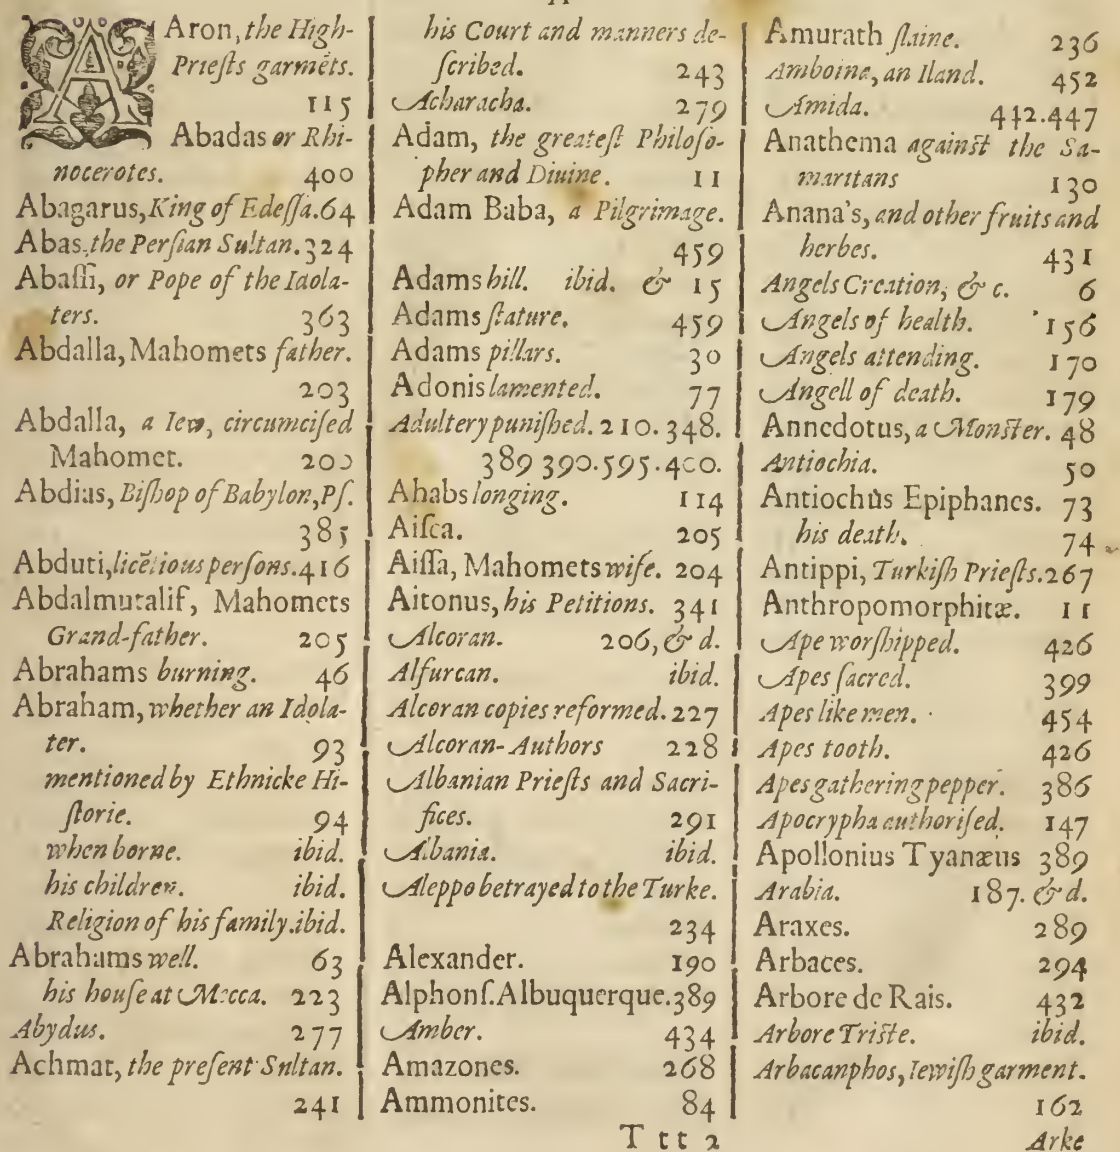 AAron, the High-
Prieſts garmẽts.
115
Abadas or Rhi-
nocerotes. 400
Abagarus, King of Edeſſa. 64
Abas, the Perſian Sultan. 324
Abaſſi, or Pope of the Idola-
ters. 363
Abdalla, Mahomets father.
203
Abdalla, a Iew, circumciſed
Mahomet. 200
Abdias, Biſhop of Babylon, Pſ.
385
Abduti, licẽtious perſons. 416
Abdalmutalif, Mahomets
Grand-father. 205
Abrahams burning. 46
Abraham, whether an Idola-
ter. 93
mentioned by Ethnicke Hi-
ſtorie. 94
when borne. ibid.
his children. ibid.
Religion of his family. ibid.
Abrahams well. 63
his houſe at Mecca. 223
Abydus. 277
Achmat, the preſent Sultan.
241
his Court and manners de-
ſcribed. 243
Acharacha. 279
Adam, the greateſt Philoſo-
pher and Diuine. 11
Adam Baba, a Pilgrimage.
459
Adams hill. ibid. & 15
Adams ſtature. 459
Adams pillars. 30
Adonis lamented. 77
Adultery puniſhed. 210. 348.
389 390. 595. 400.
Ahabs longing. 114
Aiſca. 205
Aiſſa, Mahomets wife. 204
Aitonus, his Petitions. 341
Alcoran. 206, & d.
Alfurcan. ibid.
Alcoran copies reformed. 227
Alcoran-Authors 228
Albanian Prieſts and Sacri-
fices. 291
Albania. ibid.
Aleppo betrayed to the Turke.
234
Alexander. 190
Alphonſ. Albuquerque. 389
Amber. 434
Amazones. 268
Ammonites. 84
T t t 2
Amurath ſlaine. 236
Amboina, an Iland. 452
Amida. 442.447
Anathema againſt the Sa-
maritans 130
Anana's, and other fruits and
herbes. 431
Angels Creation, & c. 6
Angels of health. 156
Angels attending. 170
Angell of death. 179
Annedotus, a Monſter. 48
Antiochia. 50
Antiochus Epiphanes. 73
his death. 74
Antippi, Turkiſh Prieſts. 267
Anthropomorphitæ. 11
Ape worſhipped. 426
Apes ſacred. 399
Apes like men. 454
Apes tooth. 426
Apes gathering pepper. 386
Apocrypha authoriſed. 147
Apollonius Tyanæus 389
Arabia. 187. & d.
Araxes. 289
Arbaces. 294
Arbore de Rais. 432
Arbore Triſte. ibid.
Arbacanphos, Iewiſh garment.
162
Arke